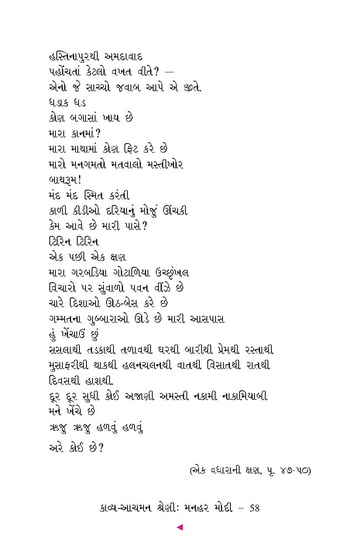 હસ્તિનાપુરથી અમદાવાદ
પહોંચતાં કેટલો વખત વીતે? —
એનો જે સાચ્ચો જવાબ આપે એ જીતે.
ધડાક ધડ
કોણ બગાસાં ખાય છે
મારા કાનમાં?
મારા માથામાં કોણ ફિટ કરે છે
મારો મનગમતો મતવાલો મસ્તીખોર
બાથરૂમ!
મંદ મંદ સ્મિત કરંતી
કાળી કીડીઓ દરિયાનું મોજું ઊંચકી
કેમ આવે છે મારી પાસે?
ટિરિન ટિરિન
એક પછી એક ક્ષણ
મારા ગરબડિયા ગોટાળિયા ઉચ્છૃંખલ
વિચારો પર સુંવાળો પવન વીંઝે છે
ચારે દિશાઓ ઊઠ-બેસ કરે છે
ગમ્મતના ગુબ્બારાઓ ઊડે છે મારી આસપાસ
હું ખેંચાઉં છું
સસલાથી તડકાથી તળાવથી ઘરથી બારીથી પ્રેમથી રસ્તાથી
મુસાફરીથી થાકથી હલનચલનથી વાતથી વિસાતથી રાતથી
દિવસથી હાશથી.
દૂર દૂર સુધી કોઈ અજાણી અમસ્તી નકામી નાકામિયાબી
મને ખેંચે છે
ઋજુ ઋજુ હળવું હળવું
અરે કોઈ છે?
(એક વધારાની ક્ષણ, પૃ. ૪૭-૫૦)
કાવ્ય-આચમન શ્રેણીઃ મનહર મોદી – 58